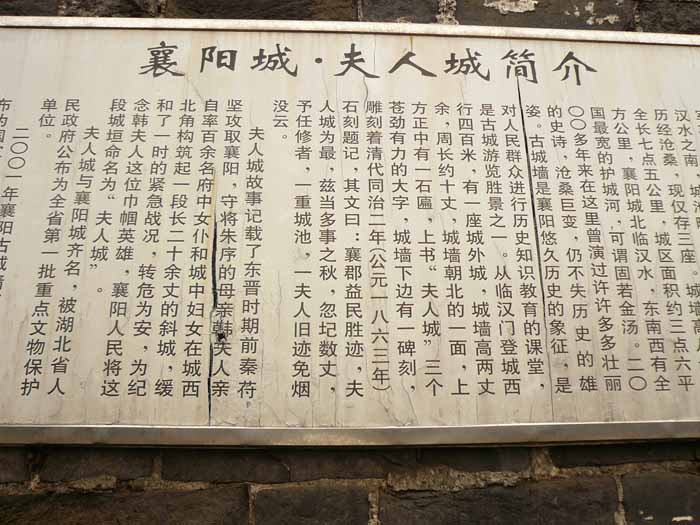 襄阳城·夫人城简介
汉水之南，城
历经沧桑，现仅存三座，城墙
全长七点五公里，城区面积约三点六平
方公里，襄阳城北临汉水，东南西有全
国最宽的护城河，可谓固若金汤。二〇
〇〇多年来在这里曾演过许许多多壮丽
的史诗，沧桑巨变，仍不失历史的雄
姿。古城墙是襄阳悠久历史的象征，是
对人民群众进行历史知识教育的课堂，
是古城游览胜景之一。从临汉门登城西
行四百米，有一座城外城，城墙高两丈
余，周长约十丈，城墙朝北的一面，上
方正中有一石匾，上书“夫人城”三个
苍劲有力的大字，城墙下边有一碑刻，
雕刻着清代同治二年(公元一八六三年)
石刻题记，其文曰：襄郡益民胜迹，夫
人城为最，兹当多事之秋，忽圮数丈，
予任修者，一重城池，一夫人旧迹免烟
没云。
夫人城故事记载了东晋时期前秦苻
坚攻取襄阳，守将朱序的母亲韩夫人亲
自率百余名府中女仆和城中妇女在城西
北角构筑起一段长二十余丈的斜城，缓
和了一时的紧急战况，转危为安，为纪
念韩夫人这位巾帼英雄，襄阳人民将这
段城垣命名为“夫人城”。
夫人城与襄阳城齐名，被湖北省人
民政府公布为全省第一批重点文物保护
单位。
二〇〇一年襄阳古城
布为国